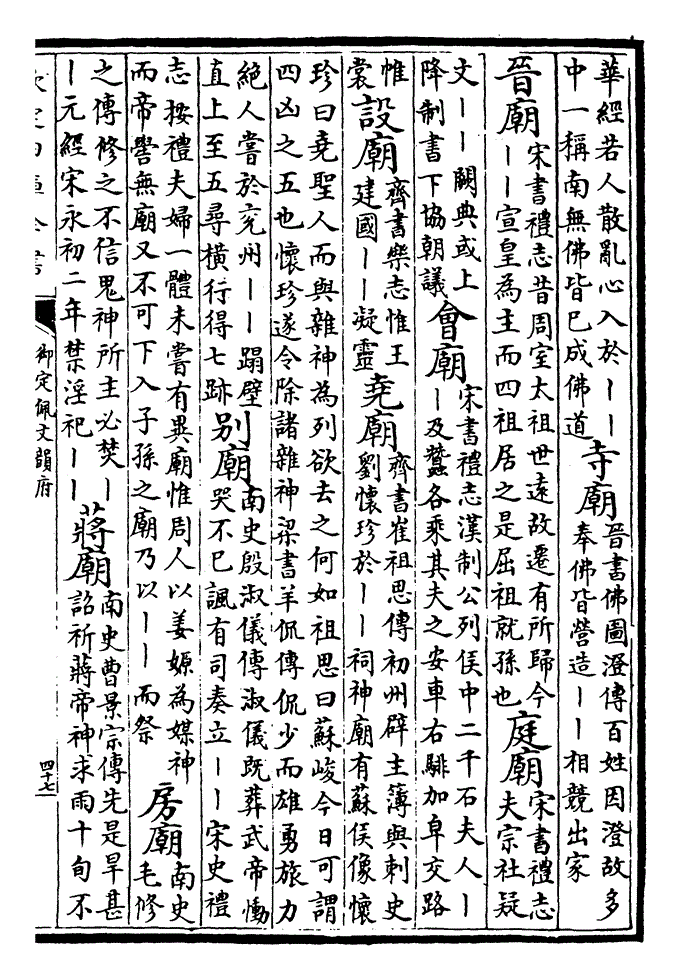 華經若人散亂心入於丨丨
中一稱南無佛皆已成佛道
寺廟
晉書佛圖澄傳百姓因澄故多
奉佛皆營造丨丨相競出家
晉廟
宋書禮志昔周室太祖世遠故遷有所歸今
丨丨宣皇為主而四祖居之是屈祖就孫也
庭廟
宋書禮志
夫宗社疑
文丨丨闕典或上
降制書下協朝議
會廟
宋書禮志漢制公列侯中二千石夫人丨
丨及蠶各乘其夫之安車右騑加皁交路
惟
裳
設廟
齊書樂志惟王
建國丨丨凝靈
堯廟
齊書崔祖思傳初州辟主簿與刺史
劉懷珍於丨丨祠神廟有蘇侯像懷
珍曰堯聖人而與雜神為列欲去之何如祖思曰蘇峻今日可謂
四凶之五也懷珍遂令除諸雜神梁書羊侃傳侃少而雄勇旅力
絶人嘗於兖州丨丨蹋壁
直上至五尋橫行得七跡
别廟
南史殷淑儀傳淑儀既葬武帝慟
哭不已諷有司奏立丨丨宋史禮
志按禮夫婦一體未嘗有異廟惟周人以姜嫄為媒神
而帝嚳無廟又不可下入子孫之廟乃以丨丨而祭
房廟
南史
毛修
之傳修之不信鬼神所主必焚丨
丨元經宋永初二年禁淫祀丨丨
蔣廟
南史曹景宗傳先是旱甚
詔祈蔣帝神求雨十旬不
欽定四庫全書
御定佩文韻府
四十七